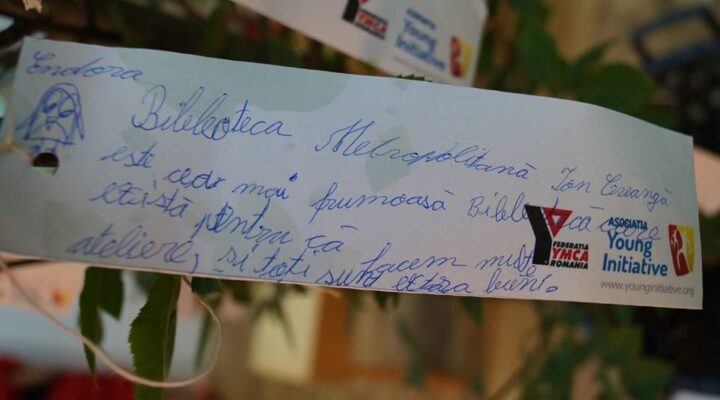 Endora
Bibleoteca Metropolitană Ion Creangă
este cea mai frumoasă Bibleotecă care
există pentru că facem multe
ateliere, și toți sunt extra buni.
FEDERATIA
YMCA
ROMANIA
ASOCIATIA
Young
Initiative
www.younginitiative.org
YMCA
ASOCIATIA
Young
Initiative